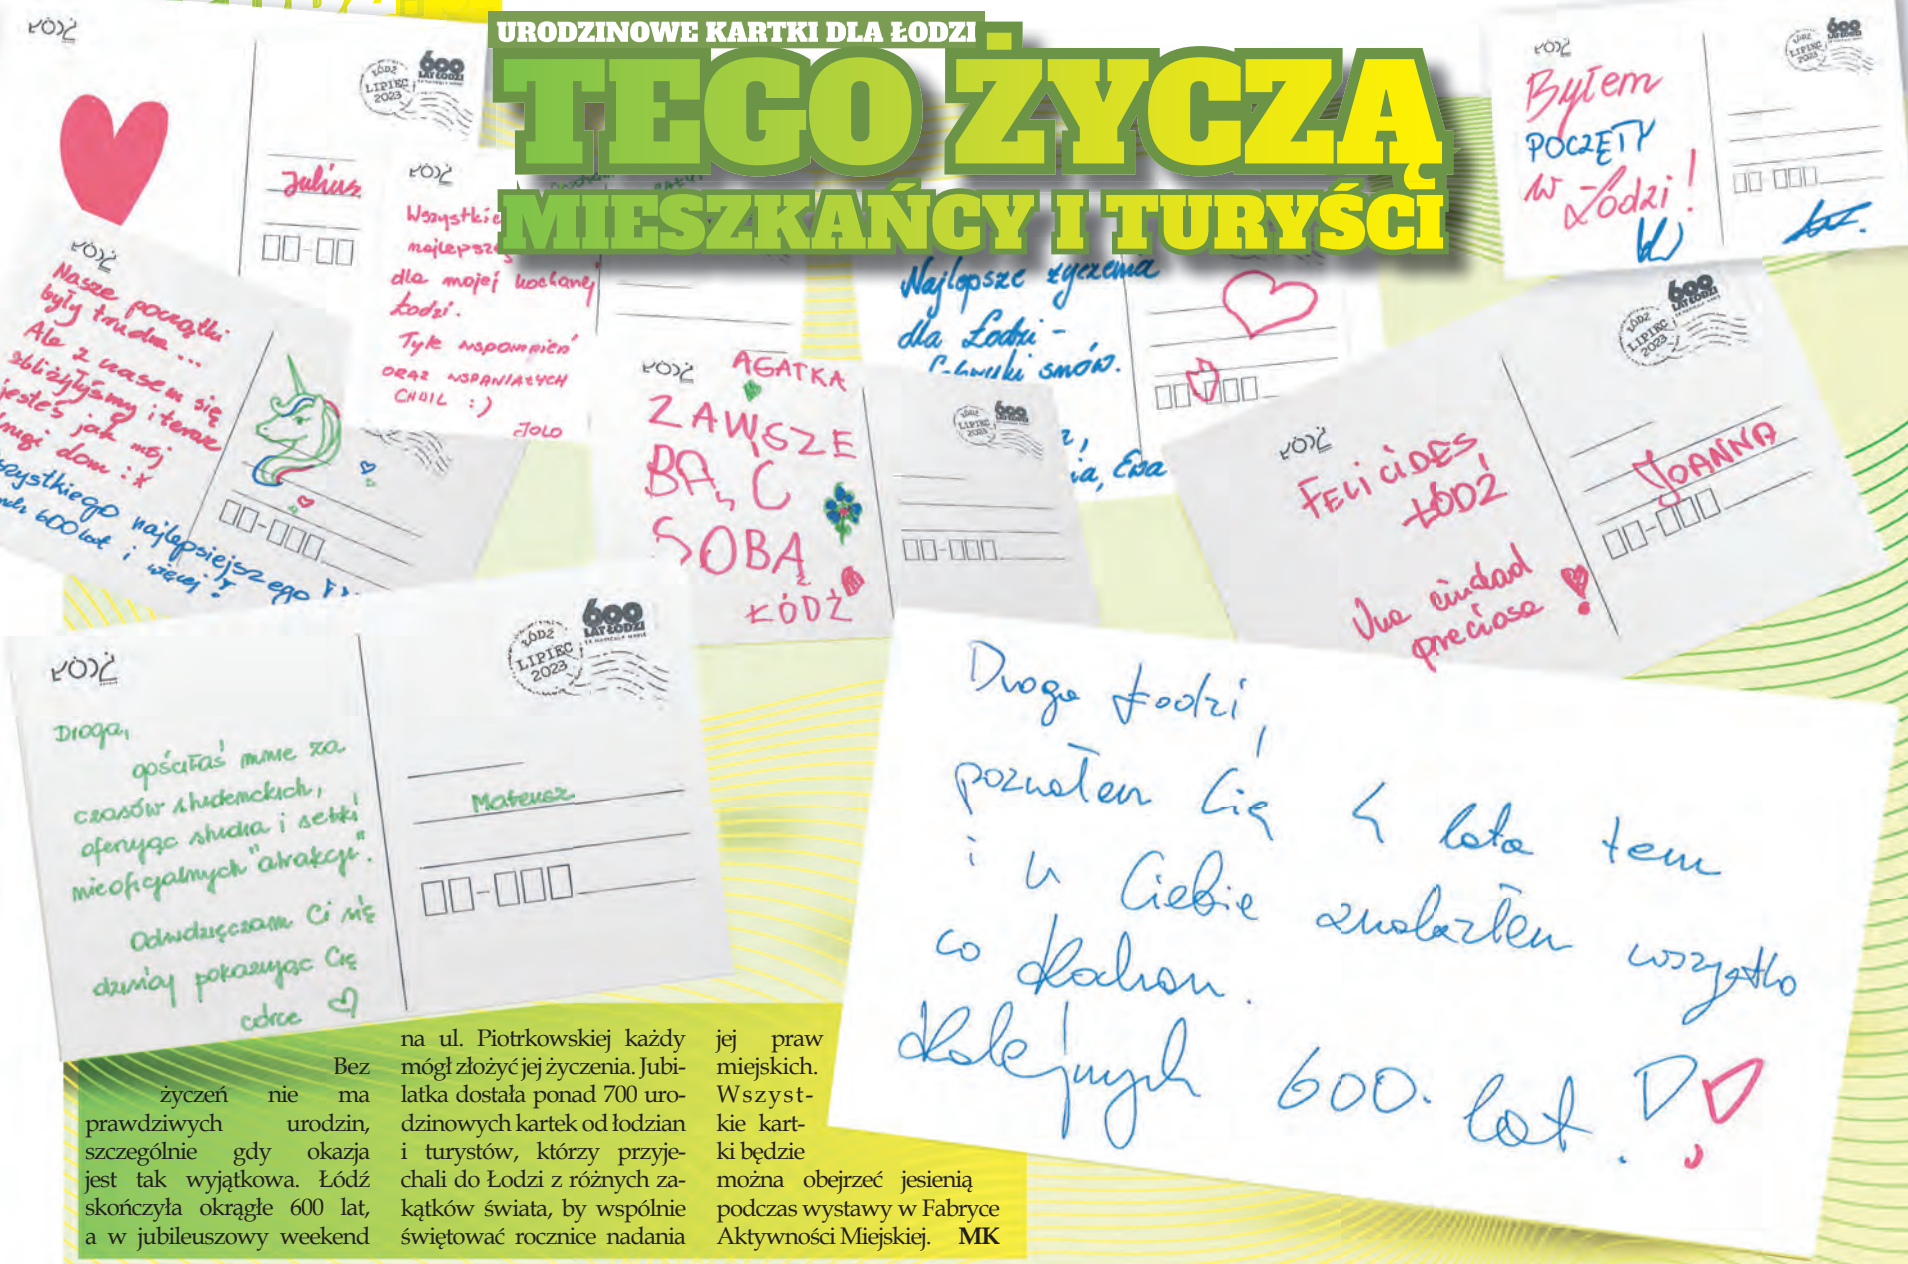 URODZINOWE KARTKI DLA ŁODZI
TEGO ŻYCZĄ
MIESZKAŃCY I TURYŚCI
ŁÓDŹ
ŁÓDŹ
LIPIEC
2023
600
LAT ŁODZI
Juliusz
ŁÓDŹ
Wszystkie
najlepsze
dla mojej kochanej
Łodzi.
Tyle wspomnień
ORAZ WSPANIAŁYCH
CHWIL :)
JOLO
Najlepsze życzenia
dla Łodzi -
snów.
Ewa
ŁÓDŹ
ŁÓDŹ
LIPIEC
2023
600
LAT ŁODZI
Byłem
POCZĘTY
w Łodzi!
ŁÓDŹ
Nasze początki
były trudne ...
Ale z czasem się
zbliżyłyśmy i teraz
jesteś jak mój
drugi dom :*
wszystkiego najlepsiejszego
600 lat i więcej!
ŁÓDŹ
AGATKA
ZAWSZE
BĄĆ
SOBĄ
ŁÓDŹ
ŁÓDŹ
LIPIEC
2023
600
LAT ŁODZI
ŁÓDŹ
ŁÓDŹ
LIPIEC
2023
600
LAT ŁODZI
FELICIDES,
ŁÓDŹ
Una ciudad
preciosa!
JOANNA
ŁÓDŹ
ŁÓDŹ
LIPIEC
2023
600
LAT ŁODZI
Droga,
gościłaś mnie za
czasów studenckich,
oferując studia i setki
nieoficjalnych "atrakcji".
Odwdzięczam Ci się
dzisiaj pokazując Cię
córce
Mateusz
Droga Łodzi,
poznałem Cię 4 lata temu
i u Ciebie znalazłem wszystko
co kocham.
Kolejnych 600. lat!
Bez
życzeń nie ma
prawdziwych urodzin,
szczególnie gdy okazja
jest tak wyjątkowa. Łódź
skończyła okrągłe 600 lat,
a w jubileuszowy weekend
na ul. Piotrkowskiej każdy
mógł złożyć jej życzenia. Jubi-
latka dostała ponad 700 uro-
dzinowych kartek od łodzian
i turystów, którzy przyje-
chali do Łodzi z różnych za-
kątków świata, by wspólnie
świętować rocznice nadania
jej praw
miejskich.
Wszyst-
kie kart-
ki będzie
można obejrzeć jesienią
podczas wystawy w Fabryce
Aktywności Miejskiej. MK